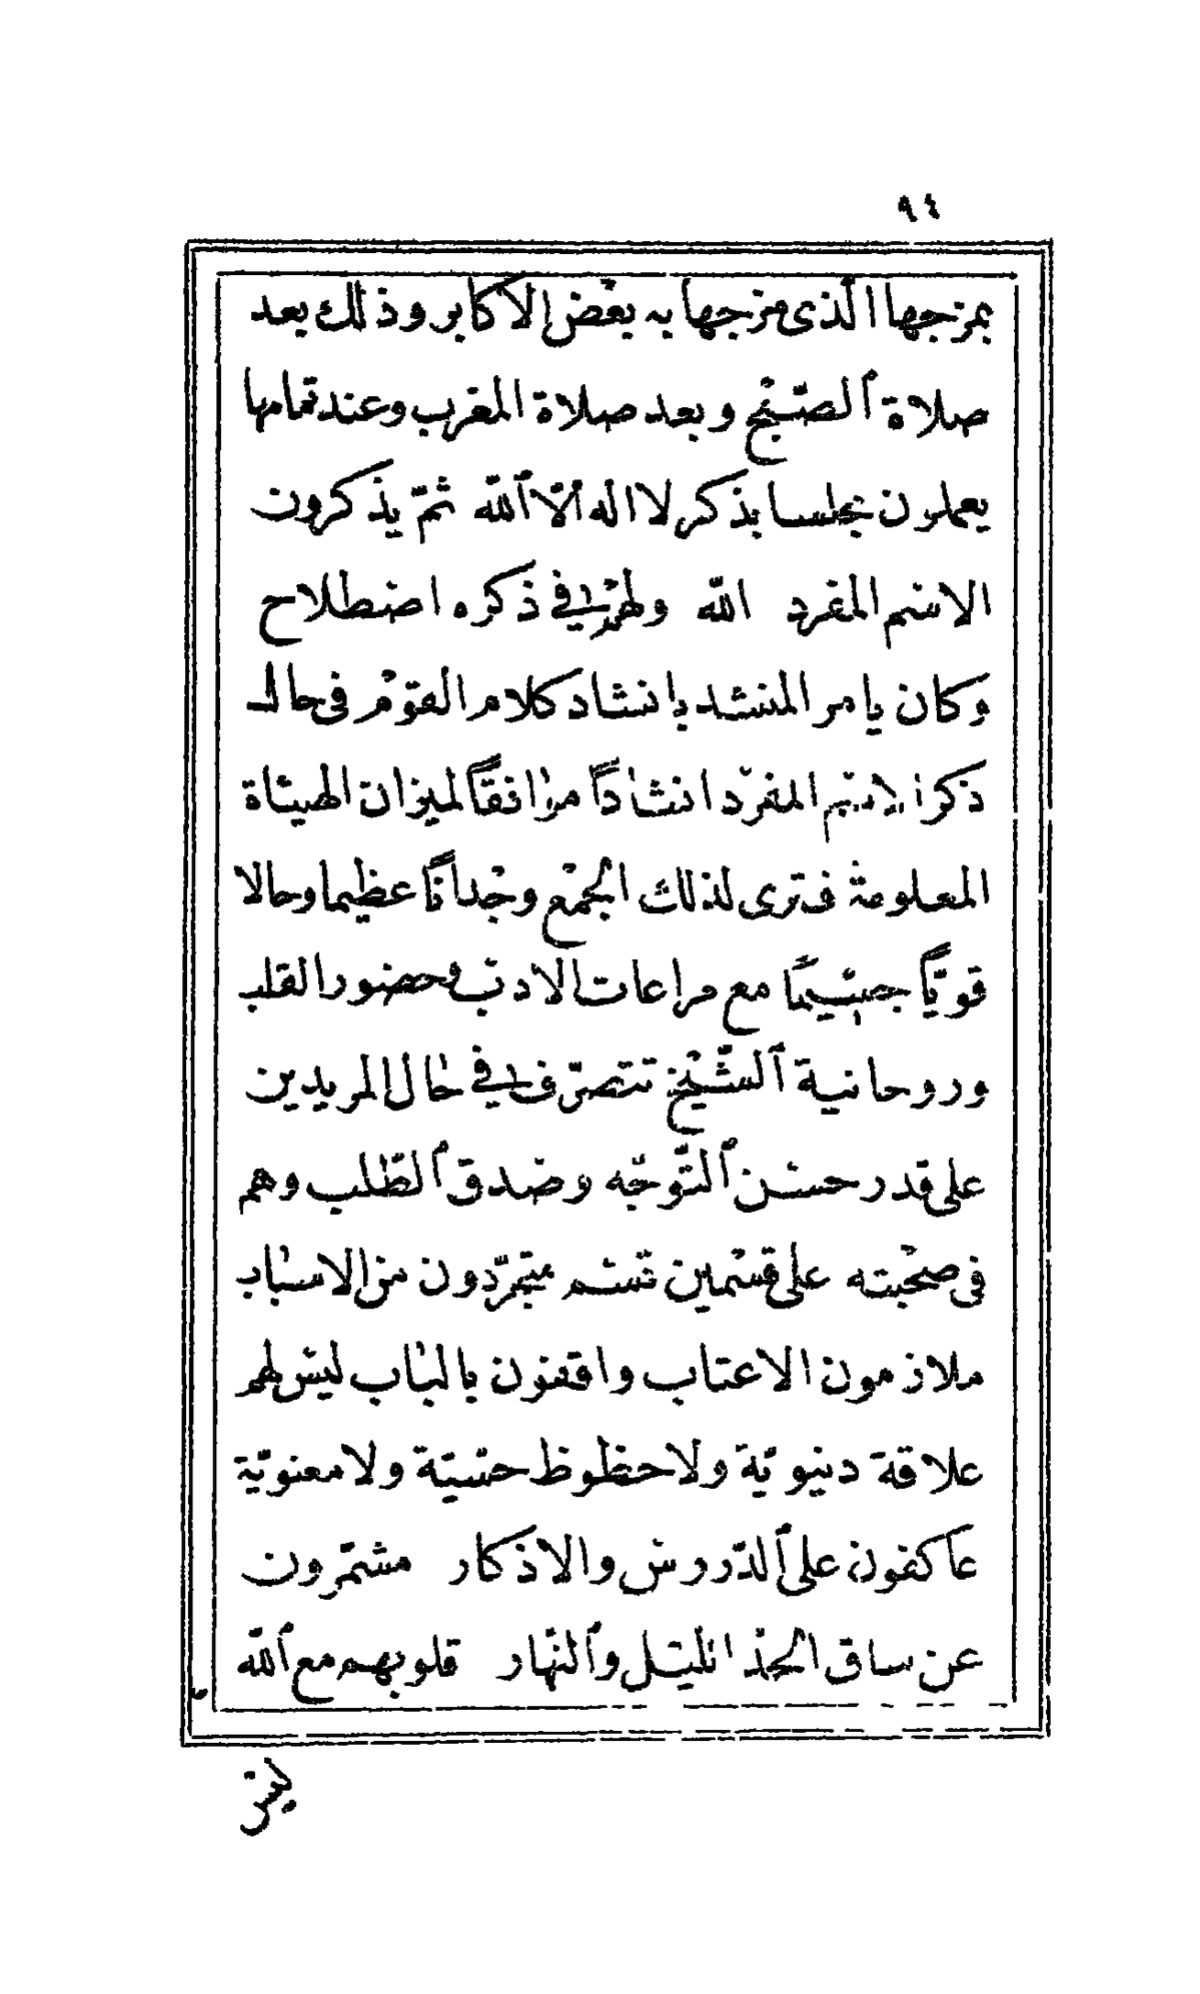 ٩٤
بمزجها الذى مزجها به بعض الاكابر وذلك بعد
صلاة الصّبح وبعد صلاة المغرب وعند تمامها
يعملون مجلسا بذكر لا اله الّا اللّه ثمّ يذكرون
الاسم المفرد اللّه ولهم فى ذكره اضطلاح
وكان يامر المنشد بانشاد كلام القوم فى حال
ذكر الاسم المفرد انشاداً موافقاً لميزان الهيئاة
المعلومة فترى لذلك الجمع وجداناً عظيما وحالا
قويّاً جسيماً مع مراعات الادب وحضور القلب
وروحانية الشّيخ تتصرّف فى حال المريدين
على قدر حسن التّوجّه وصدق الطّلب وهم
فى صحبته على قسمين قسم متجرّدون من الاسباب
ملازمون الاعتاب واقفون بالباب ليس لهم
علاقة دنيويّة ولا حظوظ حسّيّة ولا معنويّة
عاكفون على الدّروس والاذكار مشمّرون
عن ساق الجدّ اللّيل والنّهار قلوبهم مع اللّه
ليس